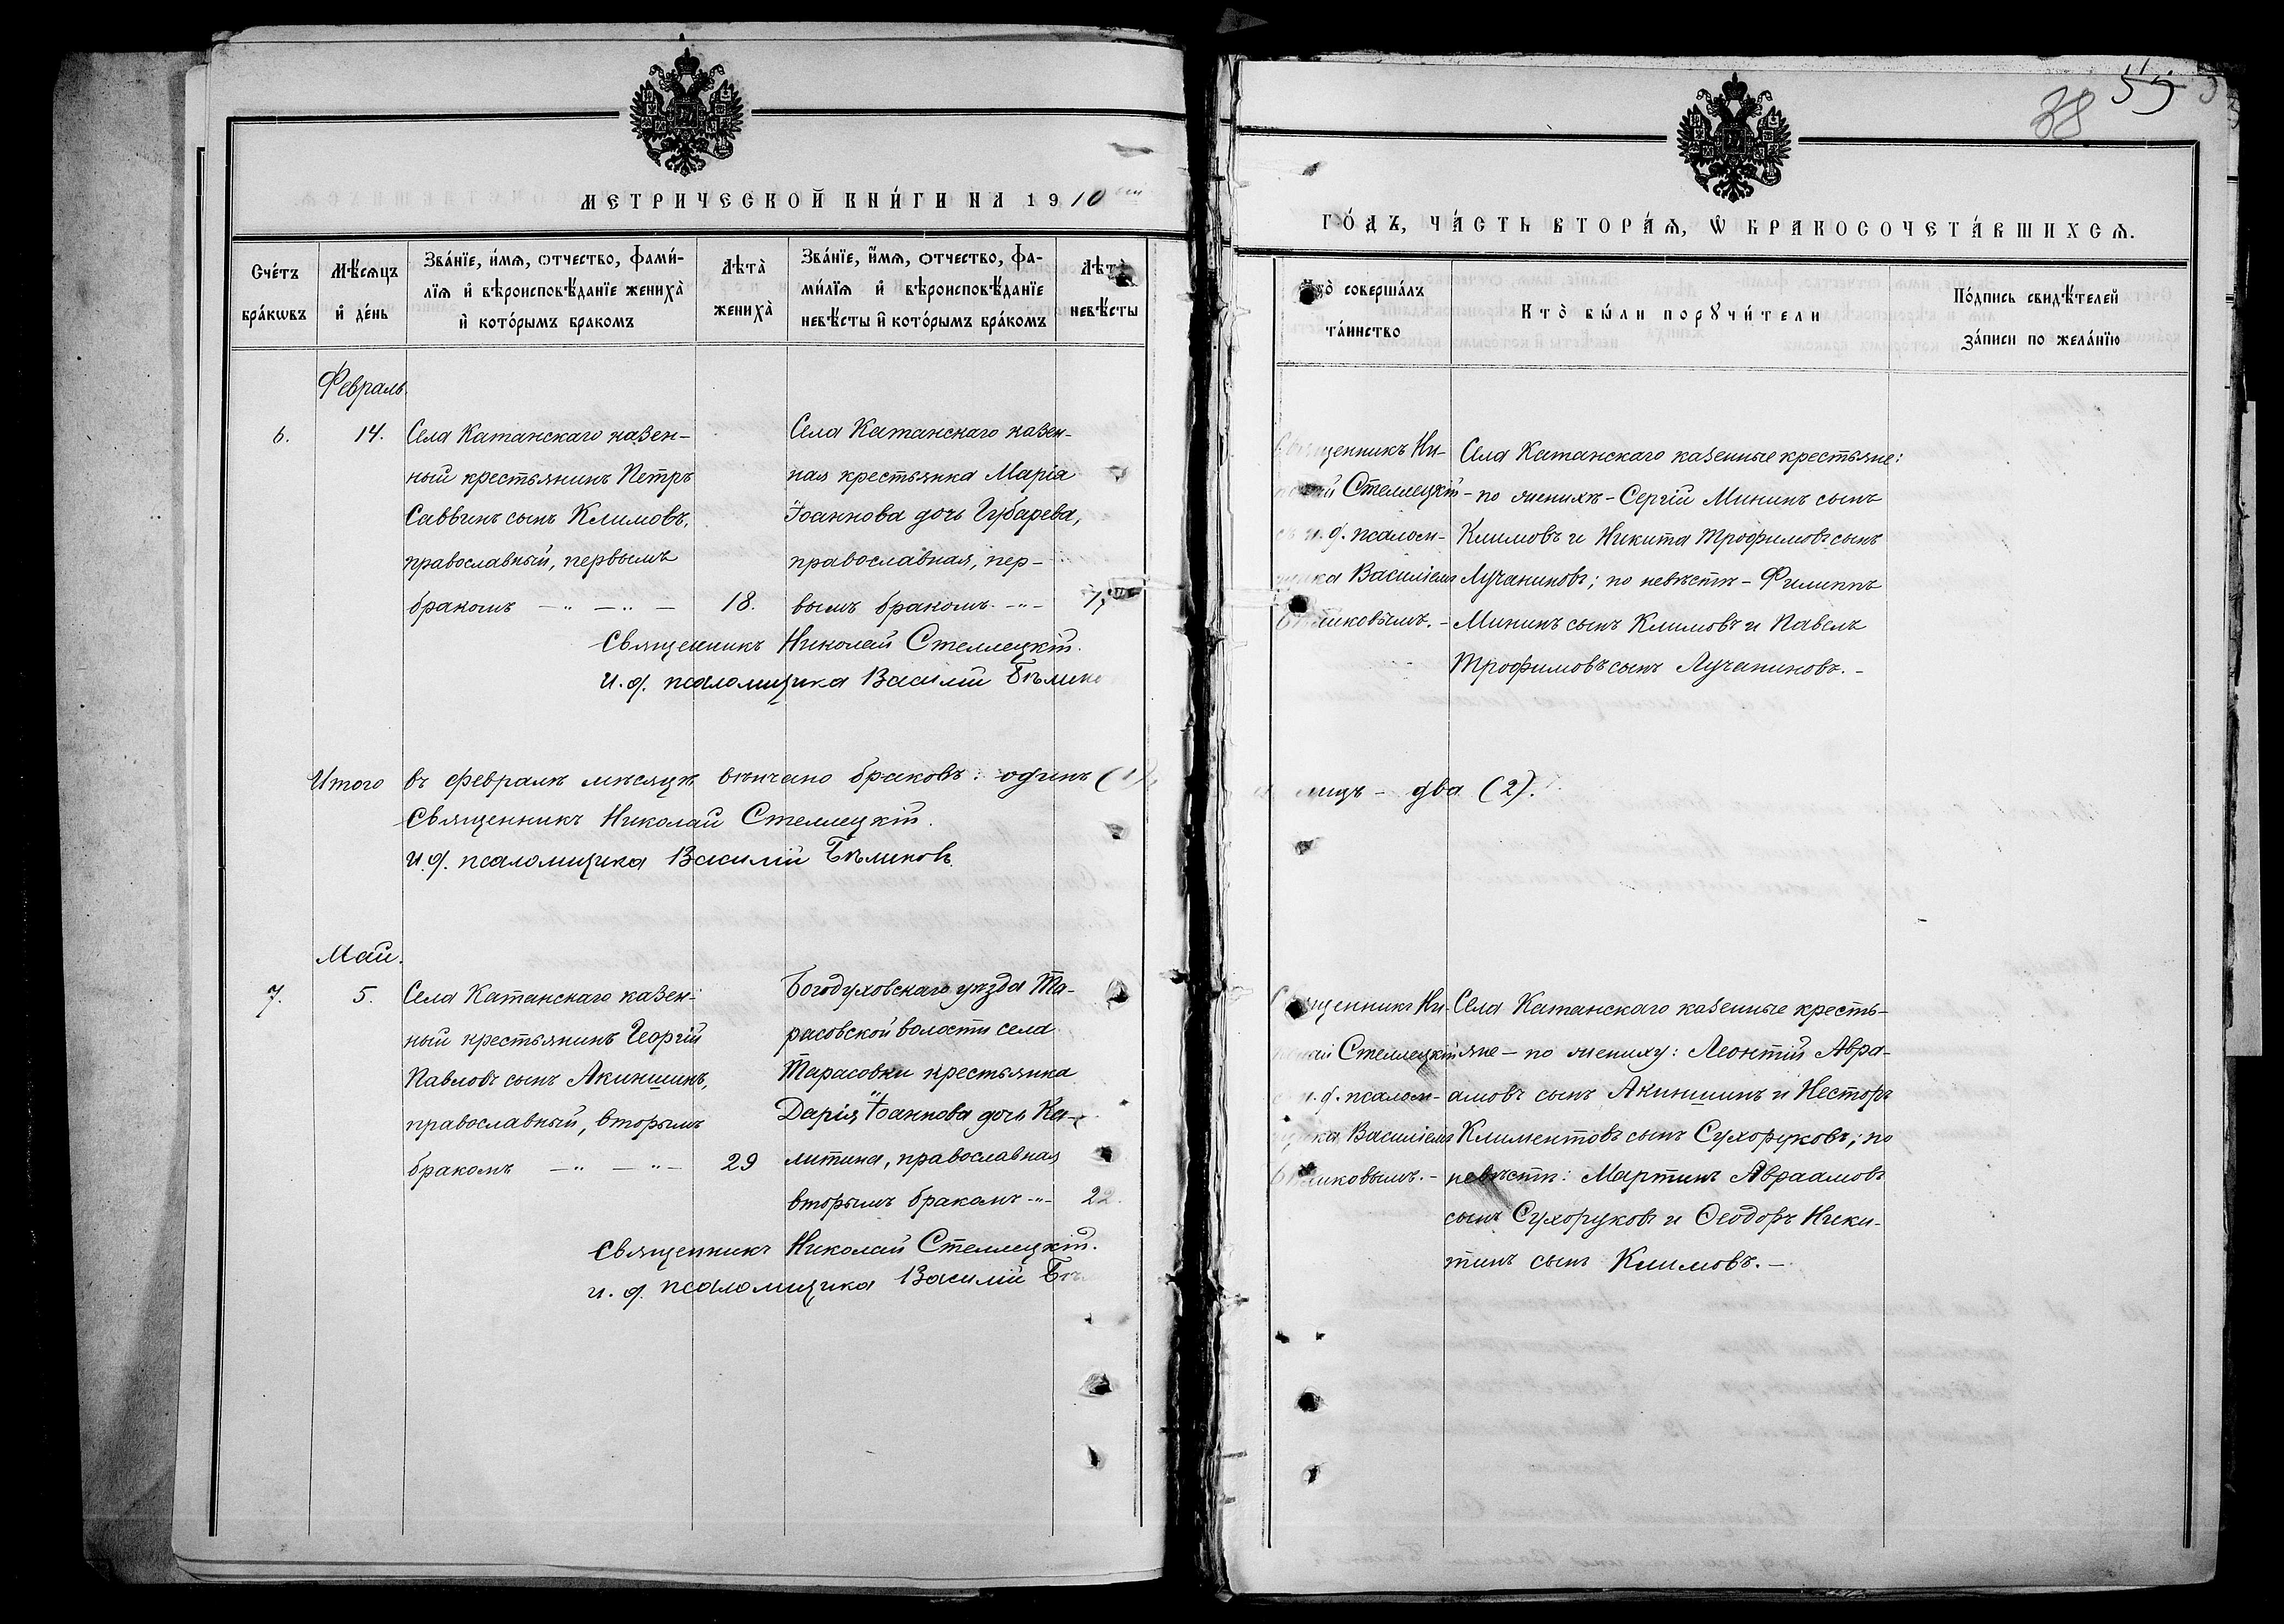 МЕТРИЧЕСКОЙ КНИ́ГИ НА 1910
Сче́тъ бра́кωвъ
Мѣ́сѧцъ и҆ де́нь
Зва́нїе, и҆́мѧ, ѻтчество, фами́-
лїѧ и҆ вѣроисповѣ́данїе жениха̀
и҆ кото́рымъ бракомъ
Лѣта̀ жениха̀
Зва́нїе, и҆́мѧ, ѻтчество, фа-
ми́лїѧ и҆ вѣроисповѣ́данїе
невѣ́сты и҆ кото́рымъ бра́комъ
Лѣта̀ невѣ́сты
Февраль.
6.
14.
Села Катанскаго казен-
ный крестьянинъ Петръ
Саввинъ сынъ Климовъ,
православный, первымъ
бракомъ
18.
Села Катанскаго казен-
ная крестьянка Марія
Іоаннова дочь Губарева,
православная, пер-
вымъ бракомъ
Священникъ Николай Стеллецкій.
И. д. псаломщика Василій
Итого въ февралѣ мѣсяцѣ вѣнчано браковъ: одинъ (1),
Священникъ Николай Стеллецкій.
И. д. псаломщика Василій Бѣликовъ.
Май.
7.
5.
Села Катанскаго казен-
ный крестьянинъ Георгій
Павловъ сынъ Акиншинъ,
православный, вторымъ
бракомъ
29
Богодуховскаго уѣзда Та-
расовской волости села
Тарасовки крестьянка
Дарія Іоаннова дочь Ка-
литина, православная
вторымъ бракомъ
22.
Священникъ Николай Стеллецкій.
и. д. псаломщика Василій
38
55
ГО́ДЪ, ЧА́СТЬ ВТОРА́Ѧ, Ѡ БРАКОСОЧЕТА́ВШИХСѦ.
Кто̀ соверша́лъ та́инство
Кто̀ бы́ли порꙋчи́тели
По́дпись свидѣ́телей за́писи по жела́нїю
Священникъ Ни-
колай Стеллецкій
съ и. д. псалом-
щика Василіемъ
Бѣликовымъ.-
Села Катанскаго казенные крестьяне:
- по женихѣ - Сергій Мининъ сынъ
Климовъ и Никита Трофимовъ сынъ
Лучаниновъ; по невѣстѣ - Филиппъ
Мининъ сынъ Климовъ и Павелъ
Трофимовъ сынъ Лучаниновъ.-
лицъ - два (2).
Священникъ Ни-
колай Стеллецкій
съ и. д. псалом-
щика Василіемъ
Бѣликовымъ.-
Села Катанскаго казенные кресть-
яне - по жениху: Леонтій Авра-
амовъ сынъ Акиншинъ и Несторъ
Климентовъ сынъ Сухоруковъ; по
невѣстѣ: Мартинъ Авраамовъ
сынъ Сухоруковъ и Ѳеодоръ Ники-
тинъ сынъ Климовъ.-